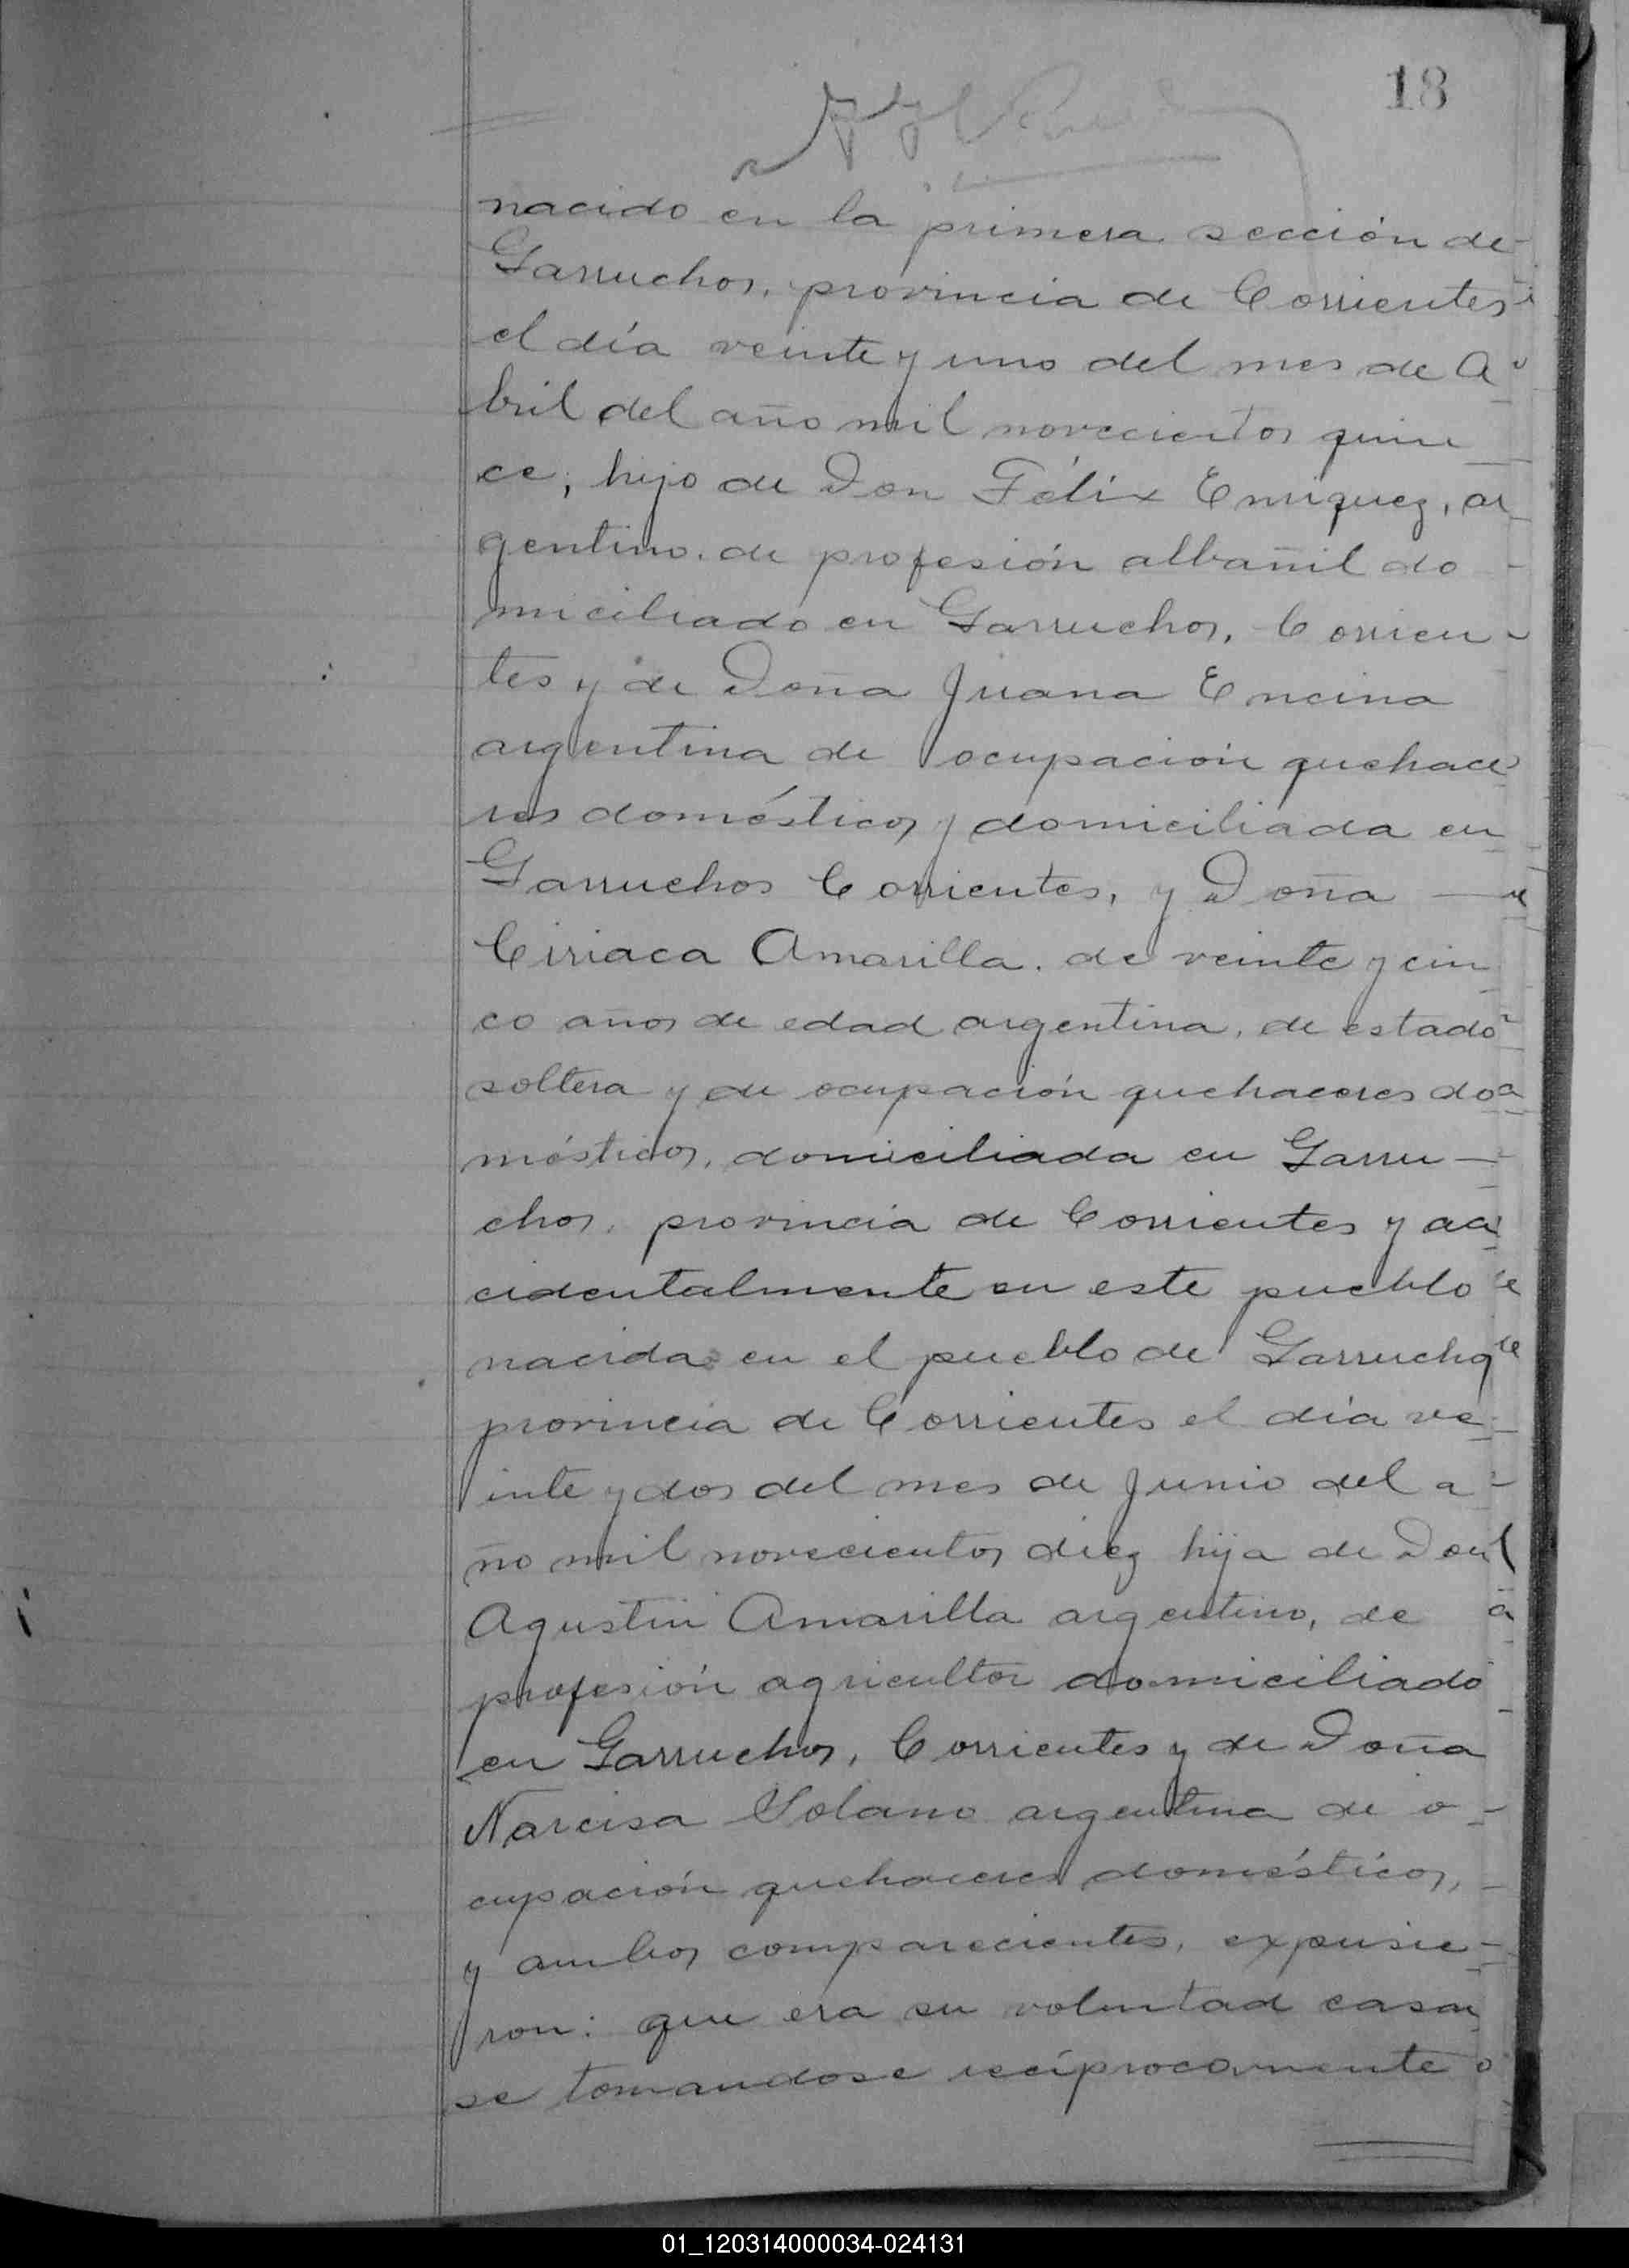 18
nacido en la primera sección de
Garruchos, provincia de Corrientes
el día veinte y uno del mes de A
bril del año mil novecientos quin
ce, hijo de Don Félix Enriquez, ar
gentino. de profesión albañil do
miciliado en Garruchos, Corrien-
tes y de Doña Juana Encina
argentina de ocupación quehace
res domésticos y domiciliada en
Garruchos Corrientes, y Doña —
Ciriaca Amarilla. de veinte y cin
co años de edad argentina, de estado
soltera y de ocupación quehaceres do
mésticos, domiciliada en Garru—
chos, provincia de Corrientes y ac
cidentalmente en este pueblo
nacida en el pueblo de Garruchos
provincia de Corrientes el día ve
inte y dos del mes de Junio del a-
ño mil novecientos diez hija de Don
Agustin Amarilla argentino, de
profesión agricultor domiciliado
en Garruchos, Corrientes y de Doña
Narcisa Solano argentina de o-
cupación quehaceres domésticos,
y ambos comparecientes, expusie-
ron: que era su voluntad casar
se tomandose recíprocamente
01_120314000034-024131